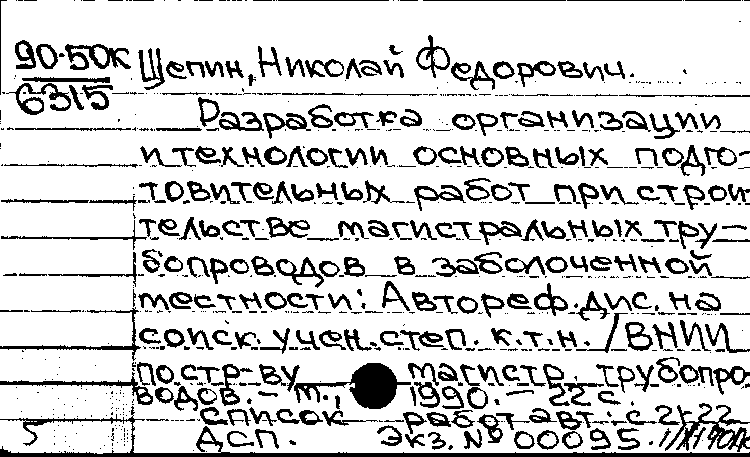 90-50к Щепин, Николай Федорович.
6315
Разработка организации
и технологии основных подго-
товительных работ при строи
тельстве магистральных тру-
бопроводов в заболоченной
местности: Автореф. дис. на
соиск. учен. степ. к.т.н. / ВНИИ
по стр-ву магистр. трубопро
водов. - М., 1990. - 22 с.
список работ авт.: с 21-22
5 ДСП. Экз. № 00095.